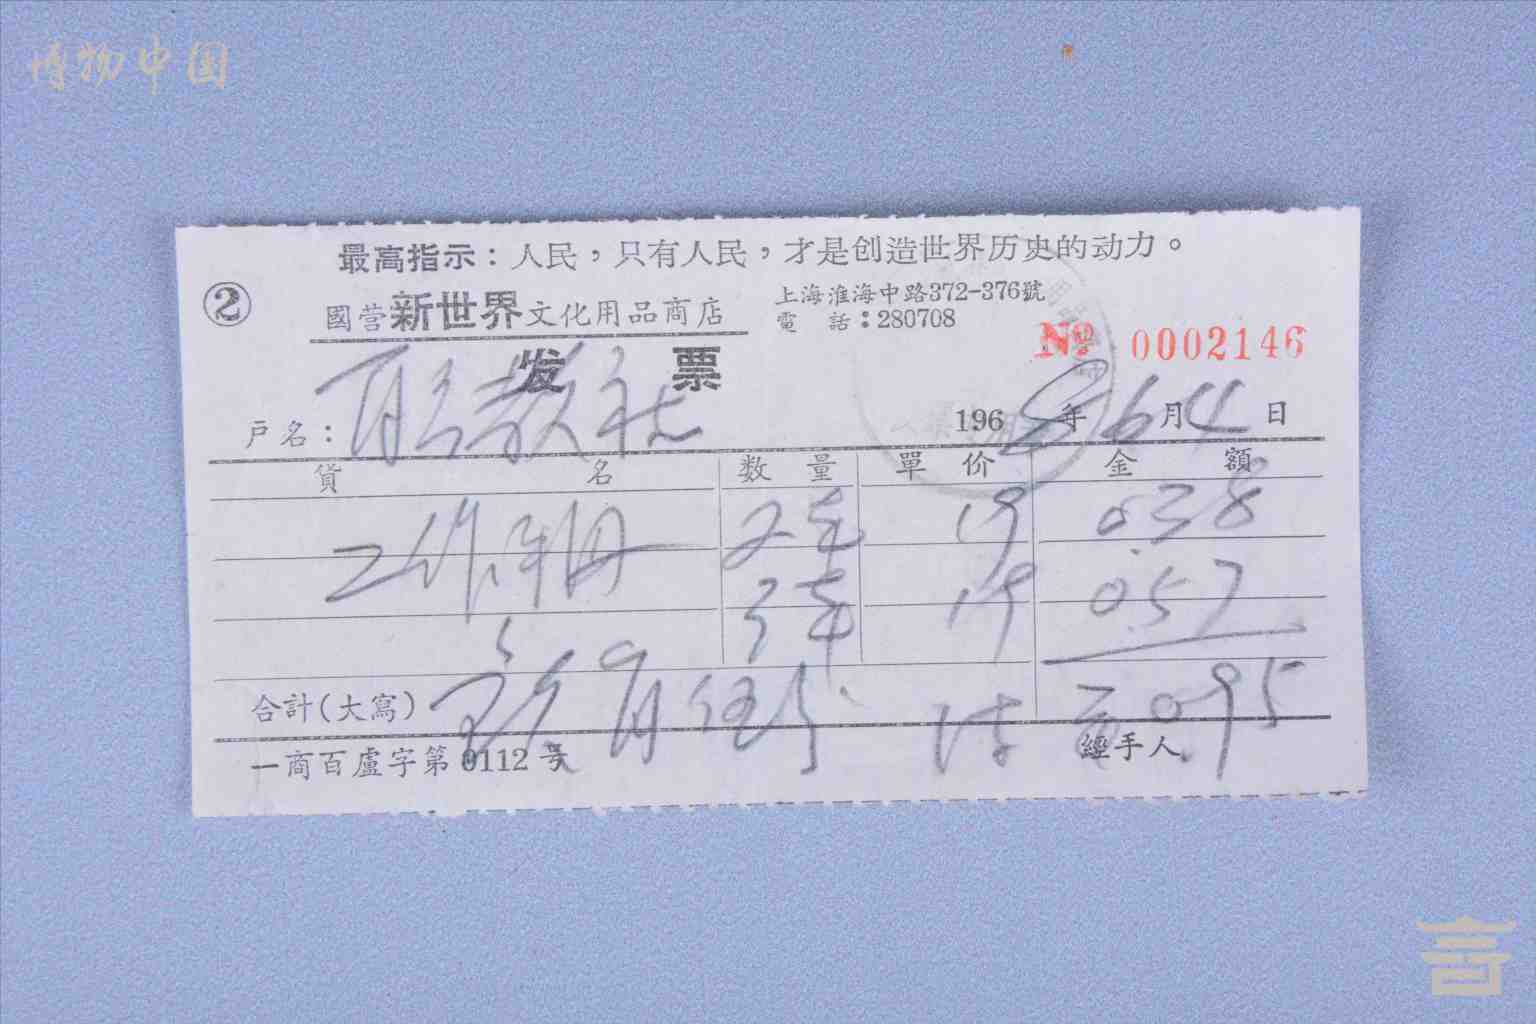 博物中国
最高指示：人民，只有人民，才是创造世界历史的动力。
②
國营新世界文化用品商店
上海淮海中路372-376號
電 話：280708
发 票
№ 0002146
户名：
1968年6月4日
貨 名 数 量 單 价 金 額
工作手册 2本 19 0.38
3本 19 0.57
合計(大寫) 玖角伍分 0.95
一商百盧字第0112号
經手人